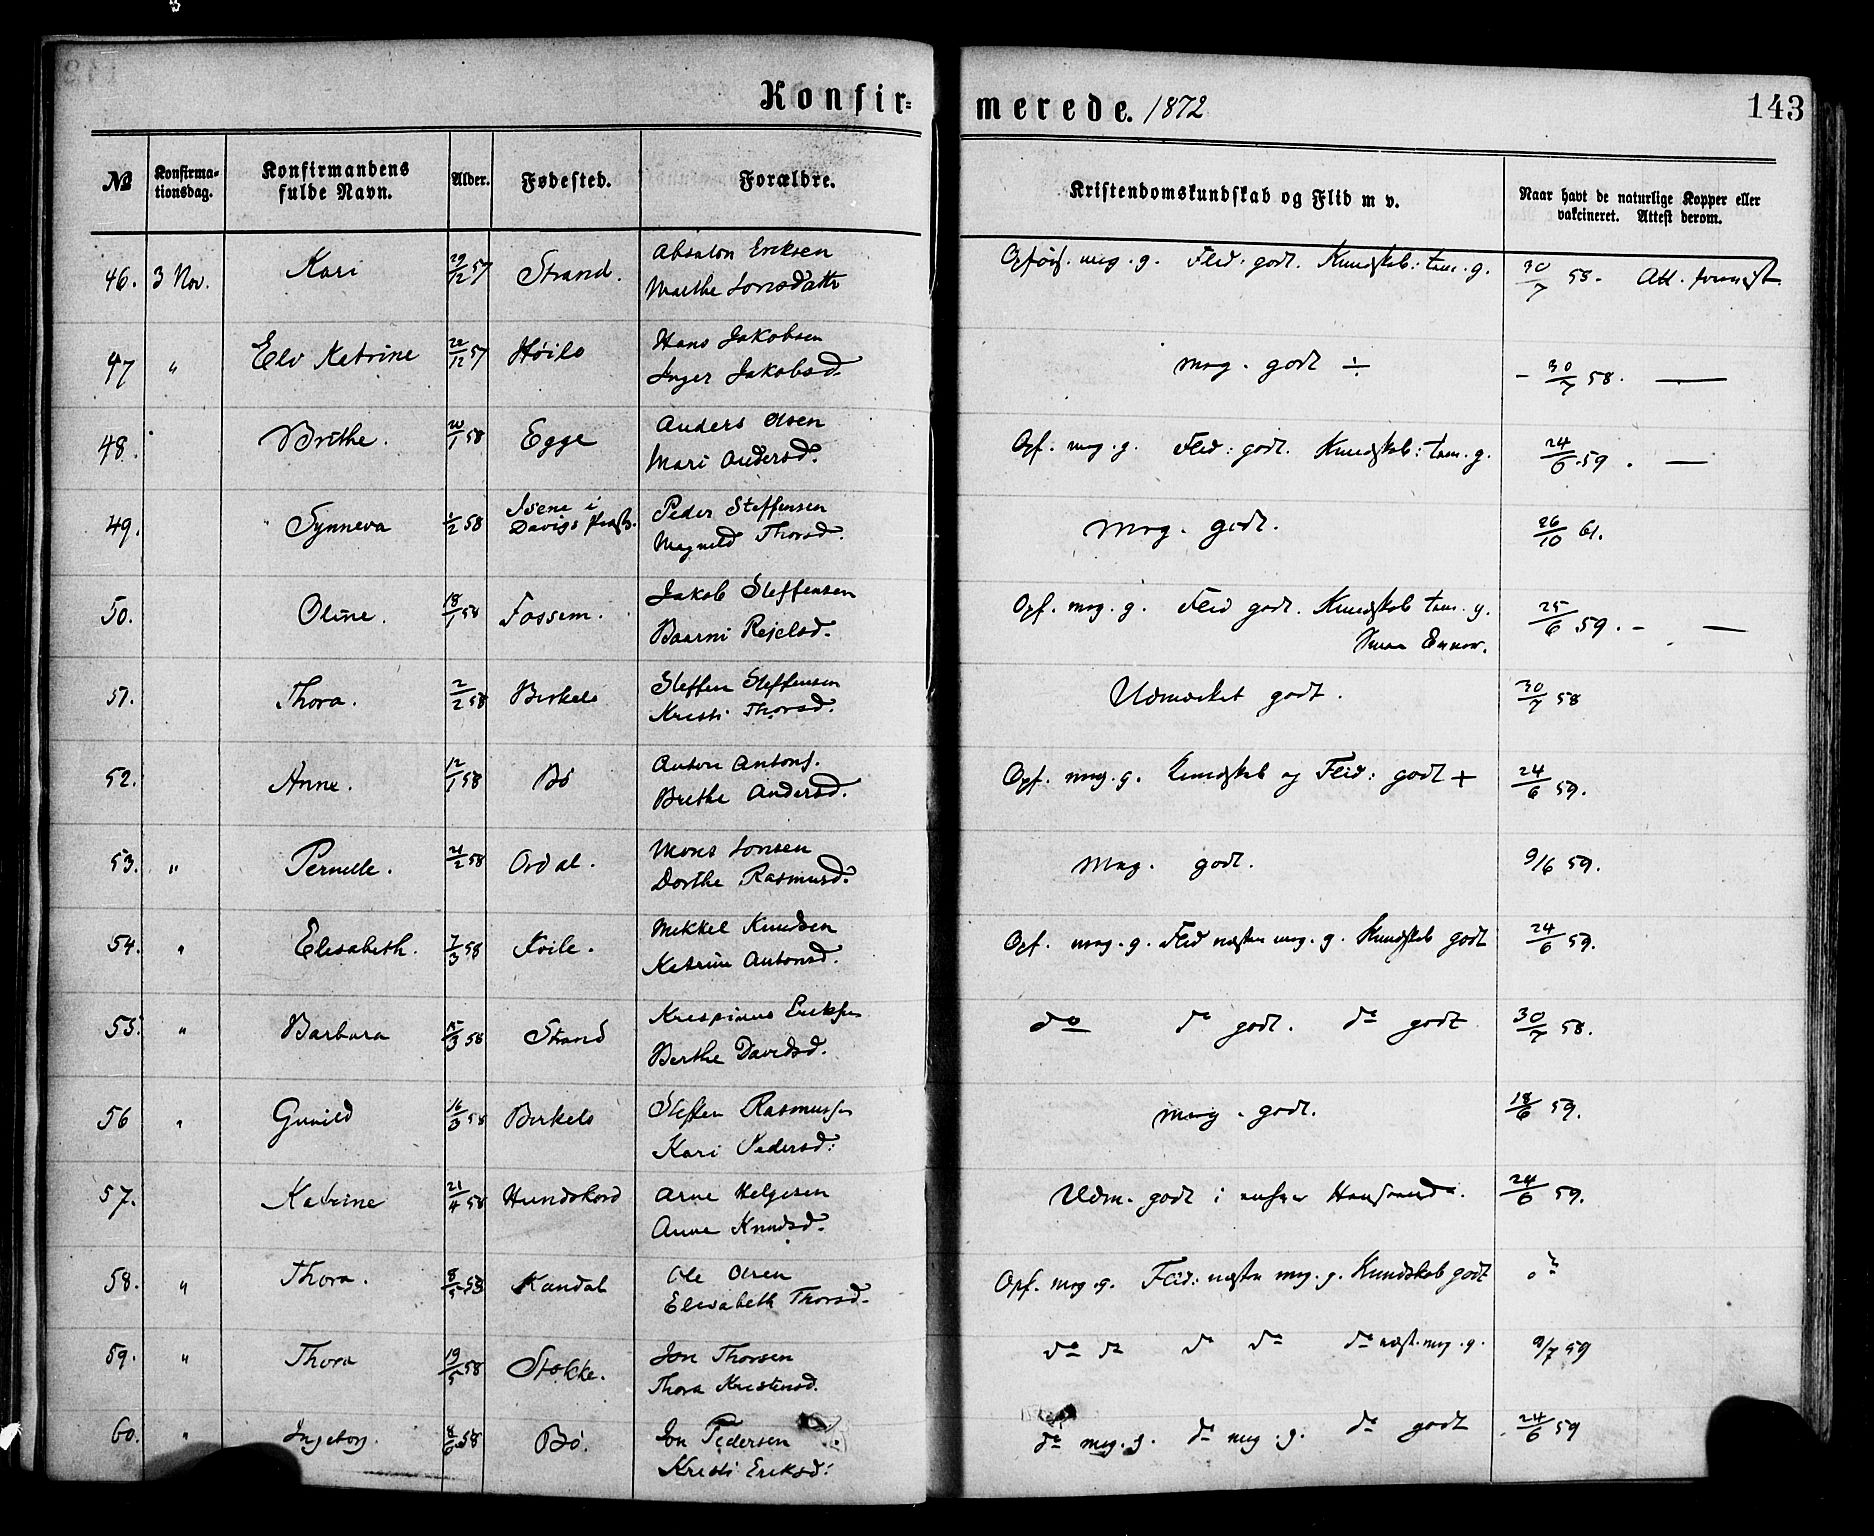 Konfir-
merede. 1872
143
№
Konfirma-
tionsdag.
Konfirmandens
fulde Navn.
Alder.
Fødested.
Forældre.
Kristendomskundskab og Flid m v.
Naar havt de naturlige Kopper eller
vakcineret. Attest derom.
46. 3 Nov. Kari 29/12 57 Strand. Absalon Eriksen
Marthe Jonsdattr
Opførs. meg. g. Flid: godt. Kundskab: tem. g. 30/7 58. Att.
47 " Elv Katrine 22/12 57 Høilo Hans Jakobsen
Inger Jakobsd.
meg. godt ÷ - 30/7 58. —
48. Brithe. 20/1 58 Egge Anders Olsen
Mari Andersd.
Opf. meg. g. Flid: godt. Kundskab: tem. g. 24/6 59. —
49. Synneva 1/2 58 Isene i
Davigs Peder Steffensen
Magnild Thorsd.
Meg. godt. 26/10 61.
50. Oline. 18/1 58 Fossem. Jakob Steffensen
Baarni Rejelsd.
Opf. meg. g. Flid godt. Kundskab tem. g.
25/6 59. - —
51. Thora. 2/2 58 Birkelo Steffen Steffensen
Kristi Thorsd.
Udmærket godt. 30/7 58
52. Anne. 12/1 58 Bö Anton Antons.
Brithe Andersd.
Opf. meg. g. Kundskab og Flid: godt + 24/6 59.
53. " Pernille. 21/2 58 Ordal. Mons Jonsen
Dorthe Rasmusd.
Meg. godt. 9/6 59.
54. " Elisabeth. 7/3 58 Koile. Mikkel Knudsen
Katrine Antonsd.
Opf. meg. g. Flid næsten meg. g. Kundskab godt 24/6 59.
55. " Barbara 15/3 58 Strand Krispinus Eriksen
Berthe Davidsd.
do do godt. do godt 30/7 58.
56 " Gunild 16/3 58 Birkelo Steffen Rasmussen
Kari Pedersd:
meg. godt. 18/6 59.
57. " Katrine 21/4 58 Hundskord Arne Helgesen
Anne Knudsd.
Udm. godt i enhver Henseende. 24/6 59.
58. " Thora. 8/5 58 Kandal Ole Olsen
Elisabeth Thorsd.
Opf. meg. g. Flid: næsten meg. g. Kundskab godt do
59. " Thora 19/5 58 Stokke. Jon Thorsen
Thora Kristensd.
do do do do do næst. meg. g. 9/7 59
60. " Ingeborg. 8/6 58 Bö. Jon Pedersen
Kristi Eriksd:
do meg. g. do meg. g. do godt 24/6 59